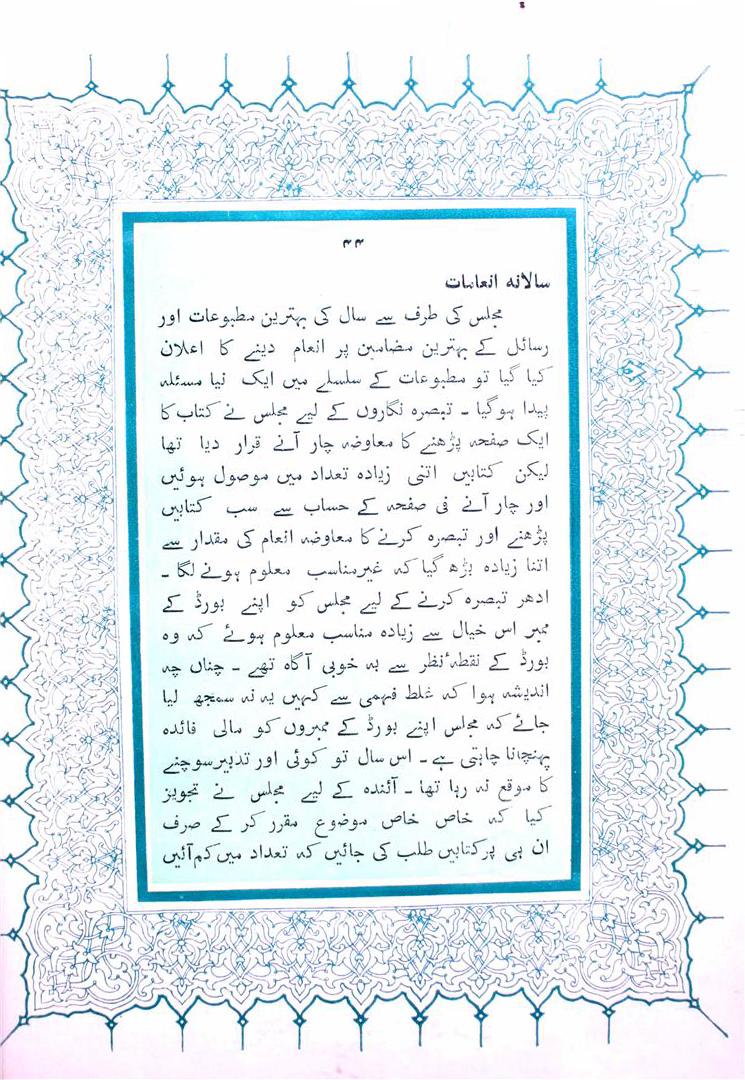 ۴۴
سالانہ انعامات
مجلس کی طرف سے سال کی بہترین مطبوعات اور
رسائل کے بہترین مضامین پر انعام دینے کا اعلان
کیا گیا تو مطبوعات کے سلسلے میں ایک نیا مسئلہ
پیدا ہوگیا ۔ تبصرہ نگاروں کے لیے مجلس نے کتاب کا
ایک صفحہ پڑھنے کا معاوضہ چار آنے قرار دیا تھا
لیکن کتابیں اتنی زیادہ تعداد میں موصول ہوئیں
اور چار آنے فی صفحہ کے حساب سے سب کتابیں
پڑھنے اور تبصرہ کرنے کا معاوضہ انعام کی مقدار سے
اتنا زیادہ بڑھ گیا کہ غیرمناسب معلوم ہونے لگا ۔
ادھر تبصرہ کرنے کے لیے مجلس کو اپنے بورڈ کے
ممبر اس خیال سے زیادہ مناسب معلوم ہوئے کہ وہ
بورڈ کے نقطۂ نظر سے بہ خوبی آگاہ تھے ۔ چناں چہ
اندیشہ ہوا کہ غلط فہمی سے کہیں یہ نہ سمجھ لیا
جائے کہ مجلس اپنے بورڈ کے ممبروں کو مالی فائدہ
پہنچانا چاہتی ہے ۔ اس سال تو کوئی اور تدبیر سوچنے
کا موقع نہ رہا تھا ۔ آئندہ کے لیے مجلس نے تجویز
کیا کہ خاص خاص موضوع مقرر کر کے صرف
ان ہی پر کتابیں طلب کی جائیں کہ تعداد میں کم آئیں